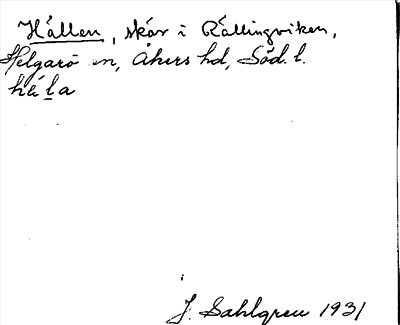 Hällen, skär i Rällingviken,
Helgarö sn, Åkers hd, Söd. l.
hä̀la
J. Sahlgren 1931